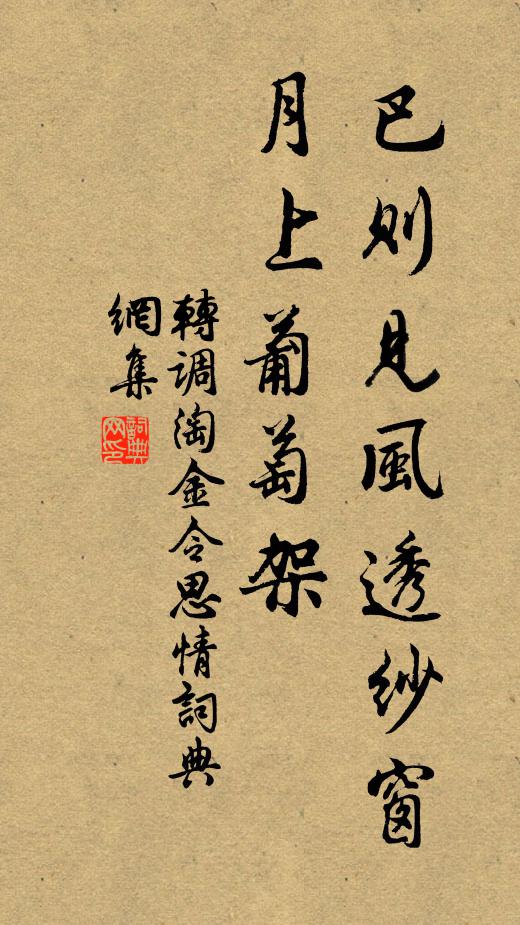 已则見風透紗窗
月上葡萄架
轉调淘金令思情詞典
網集
詞典
网印